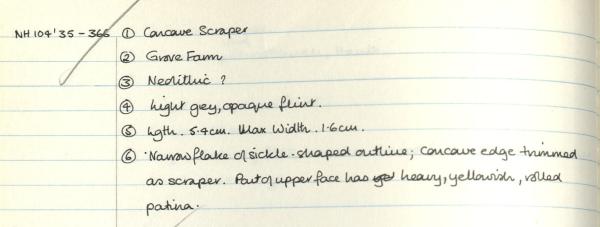 NH 104'35 - 366 ① Concave Scraper
② Grove Farm
③ Neolithic ?
④ Light grey, opaque flint.
⑤ Lgth. 5.4cm. Max Width. 1.6cm.
⑥ Narrow flake of sickle-shaped outline; concave edge trimmed
as scraper. Part of upper face has heavy, yellowish, rolled
patina.